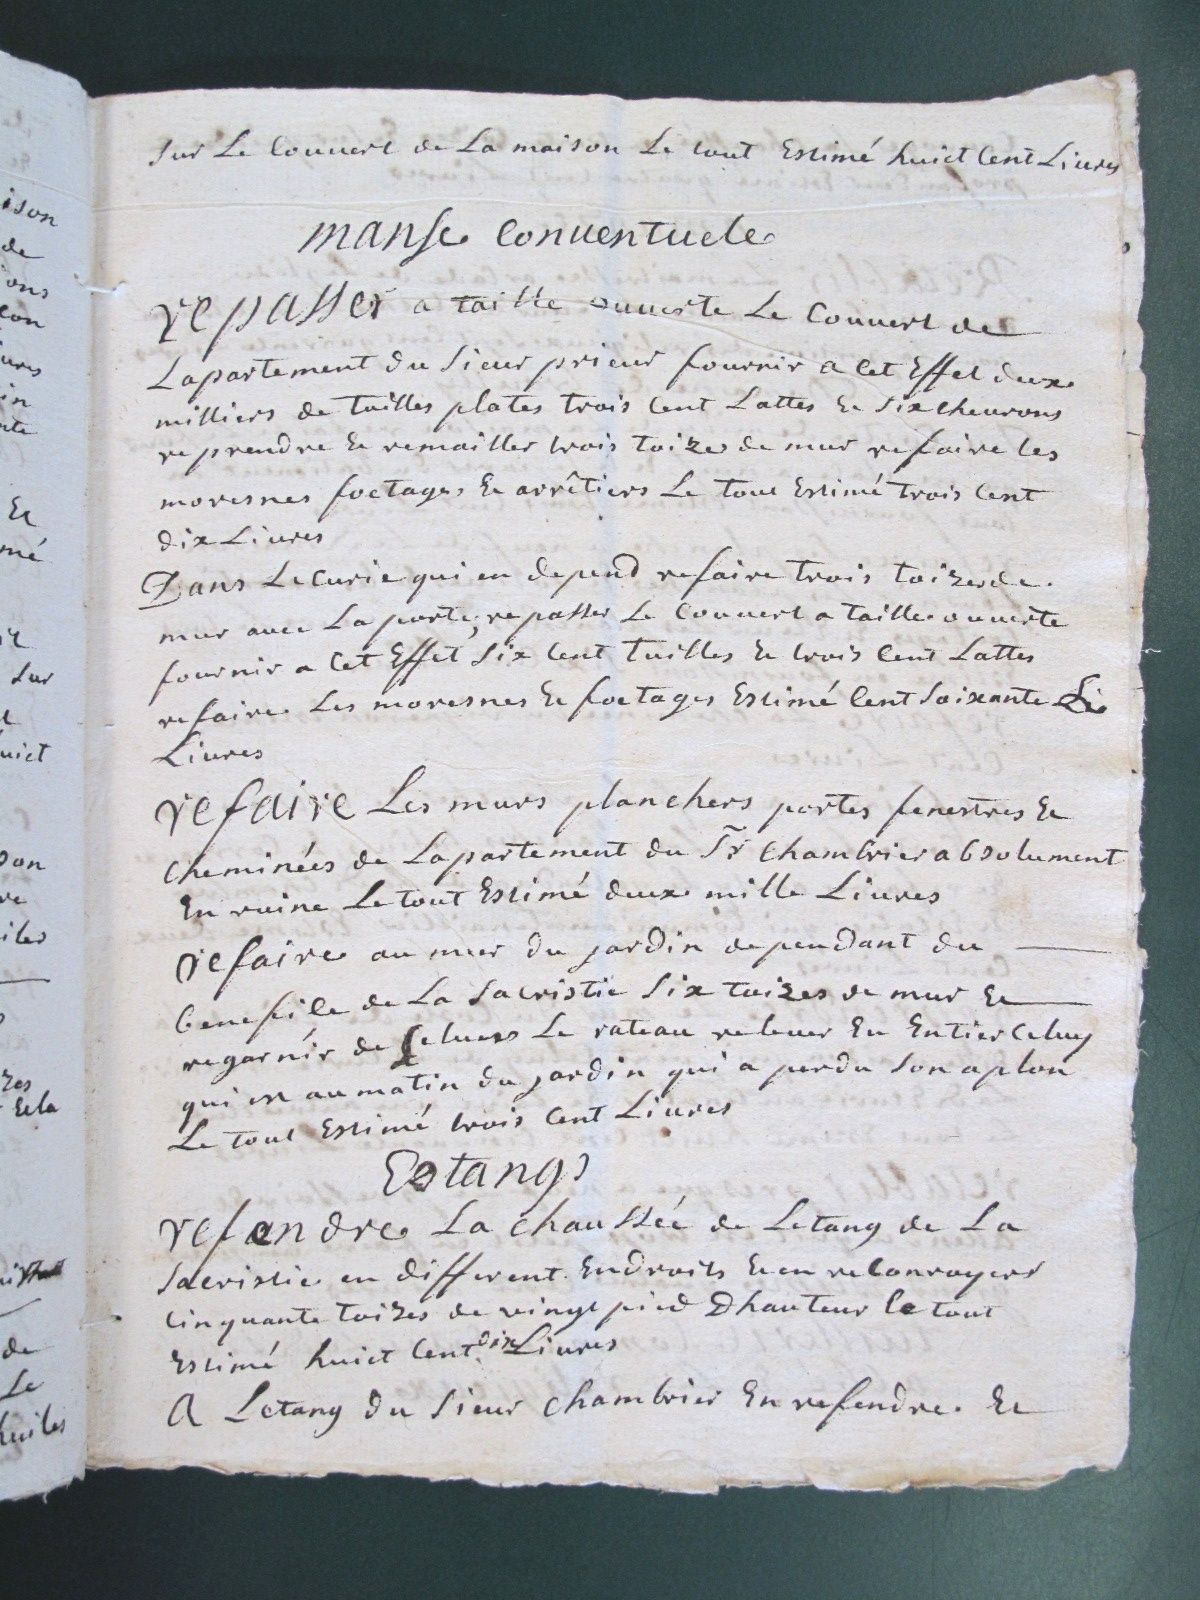 sur Le Couuert de La maison Le tout Estimé huict Cent Liures
manse Conuentuele
repasser a taille ouuerte Le Couuert de
Lapartement du Sieur prieur fournir a Cet Effet deux
milliers de tuilles plates trois Cent Lattes Et Six cheurons
reprendre Et remailler trois toizes de mur refaire les
moresnes foetages Et arrêtiers Le tout Estimé trois Cent
dix Liures
Dans Lecurie qui en depend refaire trois toizes de
mur auec La porte, repasser Le Couuert a taille ouuerte
fournir a Cet Effet Six Cent tuilles Et trois Cent Lattes
refaire Les moresnes Et foetages Estimé Cent Soixante
Liures
refaire Les murs planchers portes fenestres Et
cheminées de Lapartement du Sr chambrier absolument
En ruine Le tout Estimé deux mille Liures
refaire au mur du jardin dependant du
benefice de La Sacristie Six toizes de mur Et
regarnir de Le rateau releuer En Entier Celuy
qui est au matin du jardin qui a perdu Son aplon
Le tout Estimé trois Cent Liures
Estangs
refendre La chaussée de Letang de La
Sacristie en different Endroits Et en reconroyer
Cinquante toizes de vingt pied Dhauteur le tout
Estimé huict Cent dix Liures
A Letang du Sieur chambrier En refendre Et
ison
de
ions
Con
iures
in
nte
Et
mé
Sur
huict
son
re
iles
zes
Et la
de
Le
tuiles